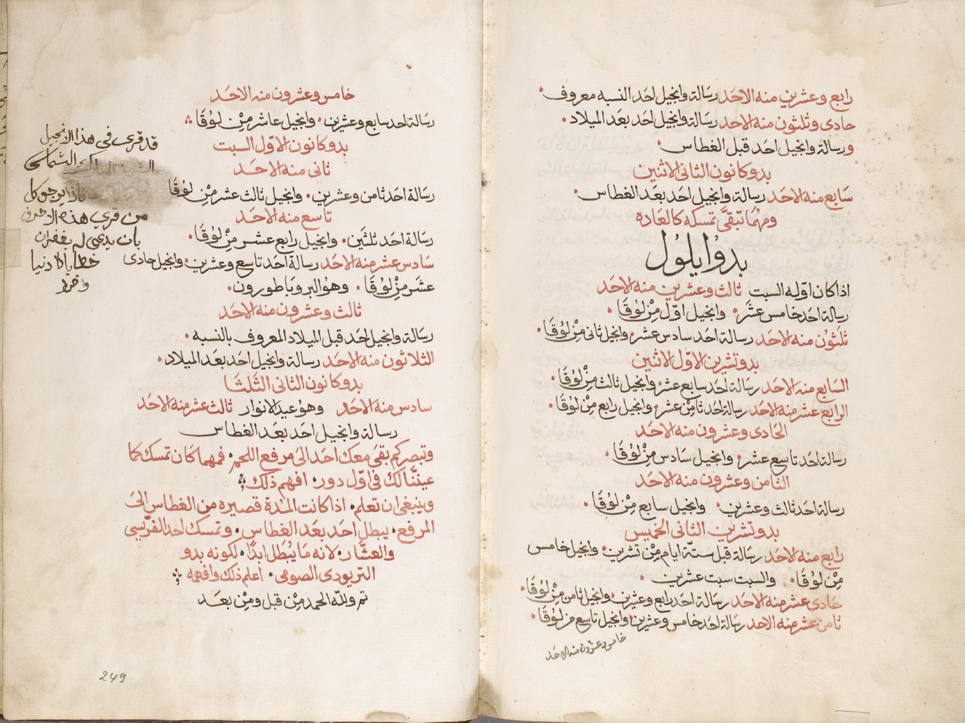 رابع وعشرين منه الاحد رسالة وانجيل احد النسبه معروف
حادى وثلثون منه الاحد رسالة وانجيل احد بعد الميلاد
ورسالة وانجيل احد قبل الغطاس
بدو كانون الثانى الاثنين
سابع منه الاحد رسالة وانجيل احد بعد الغطاس
ومهما تبقى تمسكه كالعاده
بدو ايلول
اذا كان اوله السبت ثالث وعشرين منه الاحد
رسالة احد خامس عشر وانجيل اول من لوقا
ثلثون منه الاحد رسالة احد سادس عشر وانجيل ثانى من لوقا
بدو تشرين الاول الاثنين
السابع منه الاحد رسالة احد سابع عشر وانجيل ثالث من لوقا
الرابع عشر منه الاحد رسالة احد ثامن عشر وانجيل رابع من لوقا
الحادى وعشرون منه الاحد
رسالة احد تاسع عشر وانجيل سادس من لوقا
الثامن وعشرون منه الاحد
رسالة احد ثالث وعشرين وانجيل سابع من لوقا
بدو تشرين الثانى الخميس
رابع منه الاحد رسالة قبل ستة ايام من تشرين وانجيل خامس
من لوقا والسبت سبت عشرين
حادى عشر منه الاحد رسالة احد رابع وعشرين وانجيل ثامن من لوقا
ثامن عشر منه الاحد رسالة احد خامس وعشرين وانجيل تاسع من لوقا
خامس وعشرون منه الاحد
خامس وعشرون منه الاحد
رسالة احد سابع وعشرين وانجيل عاشر من لوقا
بدو كانون الاول السبت
ثانى منه الاحد
رسالة احد ثامن وعشرين وانجيل ثالث عشر من لوقا
تاسع منه الاحد
رسالة احد ثلثين وانجيل رابع عشر من لوقا
سادس عشر منه الاحد رسالة احد تاسع وعشرين وانجيل حادى
عشر من لوقا وهو البروباطورون
ثالث وعشرون منه الاحد
رسالة وانجيل احد قبل الميلاد المعروف بالنسبه
الثلاثون منه الاحد رسالة وانجيل احد بعد الميلاد
بدو كانون الثانى الثلثا
سادس منه الاحد وهو عيد الانوار ثالث عشر منه الاحد
رسالة وانجيل احد بعد الغطاس
وتبصر كم بقى معك احد الى مرفع اللحم فمهما كان تمسك كما
عينا لك فى اول دور افهم ذلك
وينبغى ان تعلم اذا كانت المدة قصيره من الغطاس الى
المرفع يبطل احد بعد الغطاس وتمسك احد الفريسى
والعشار لانه ما يبطل ابدا لكونه بدو
التريودى الصومى اعلم ذلك وافهمه
تم ولله الحمد من قبل ومن بعد
قد قرى فى هذا الانجيل
الشماس
يرجو كل
من قرى هذه الاحرف
بان يدعى له بغفران
خطاياه دنيا
واخره
249